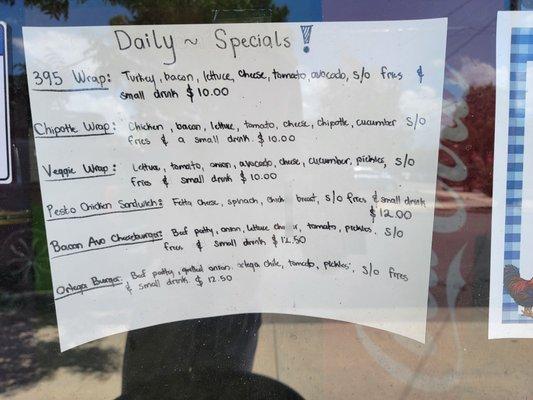 Daily ~ Specials!
395 Wrap: Turkey, bacon, lettuce, cheese, tomato, avocado, s/o fries &
small drink $10.00
Chipotle Wrap: Chicken, bacon, lettuce, tomato, cheese, chipotle, cucumber s/o
fries & a small drink. $10.00
Veggie Wrap: Lettuce, tomato, onion, avocado, cheese, cucumber, pickles, s/o
fries & small drink $10.00
Pesto Chicken Sandwich: Fetta cheese, spinach, chick breast, s/o fries & small drink
$12.00
Bacon Avo Cheeseburger: Beef patty, onion, lettuce, tomato, pickles. s/o
fries & small drink $12.50
Ortega Burger: Beef patty, grilled onion, ortega chile, tomato, pickles, s/o fries
& small drink. $12.50